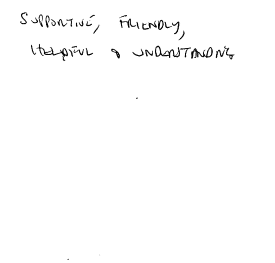 SUPPORTIVE, FRIENDLY,
HELPFUL & UNDERSTANDING